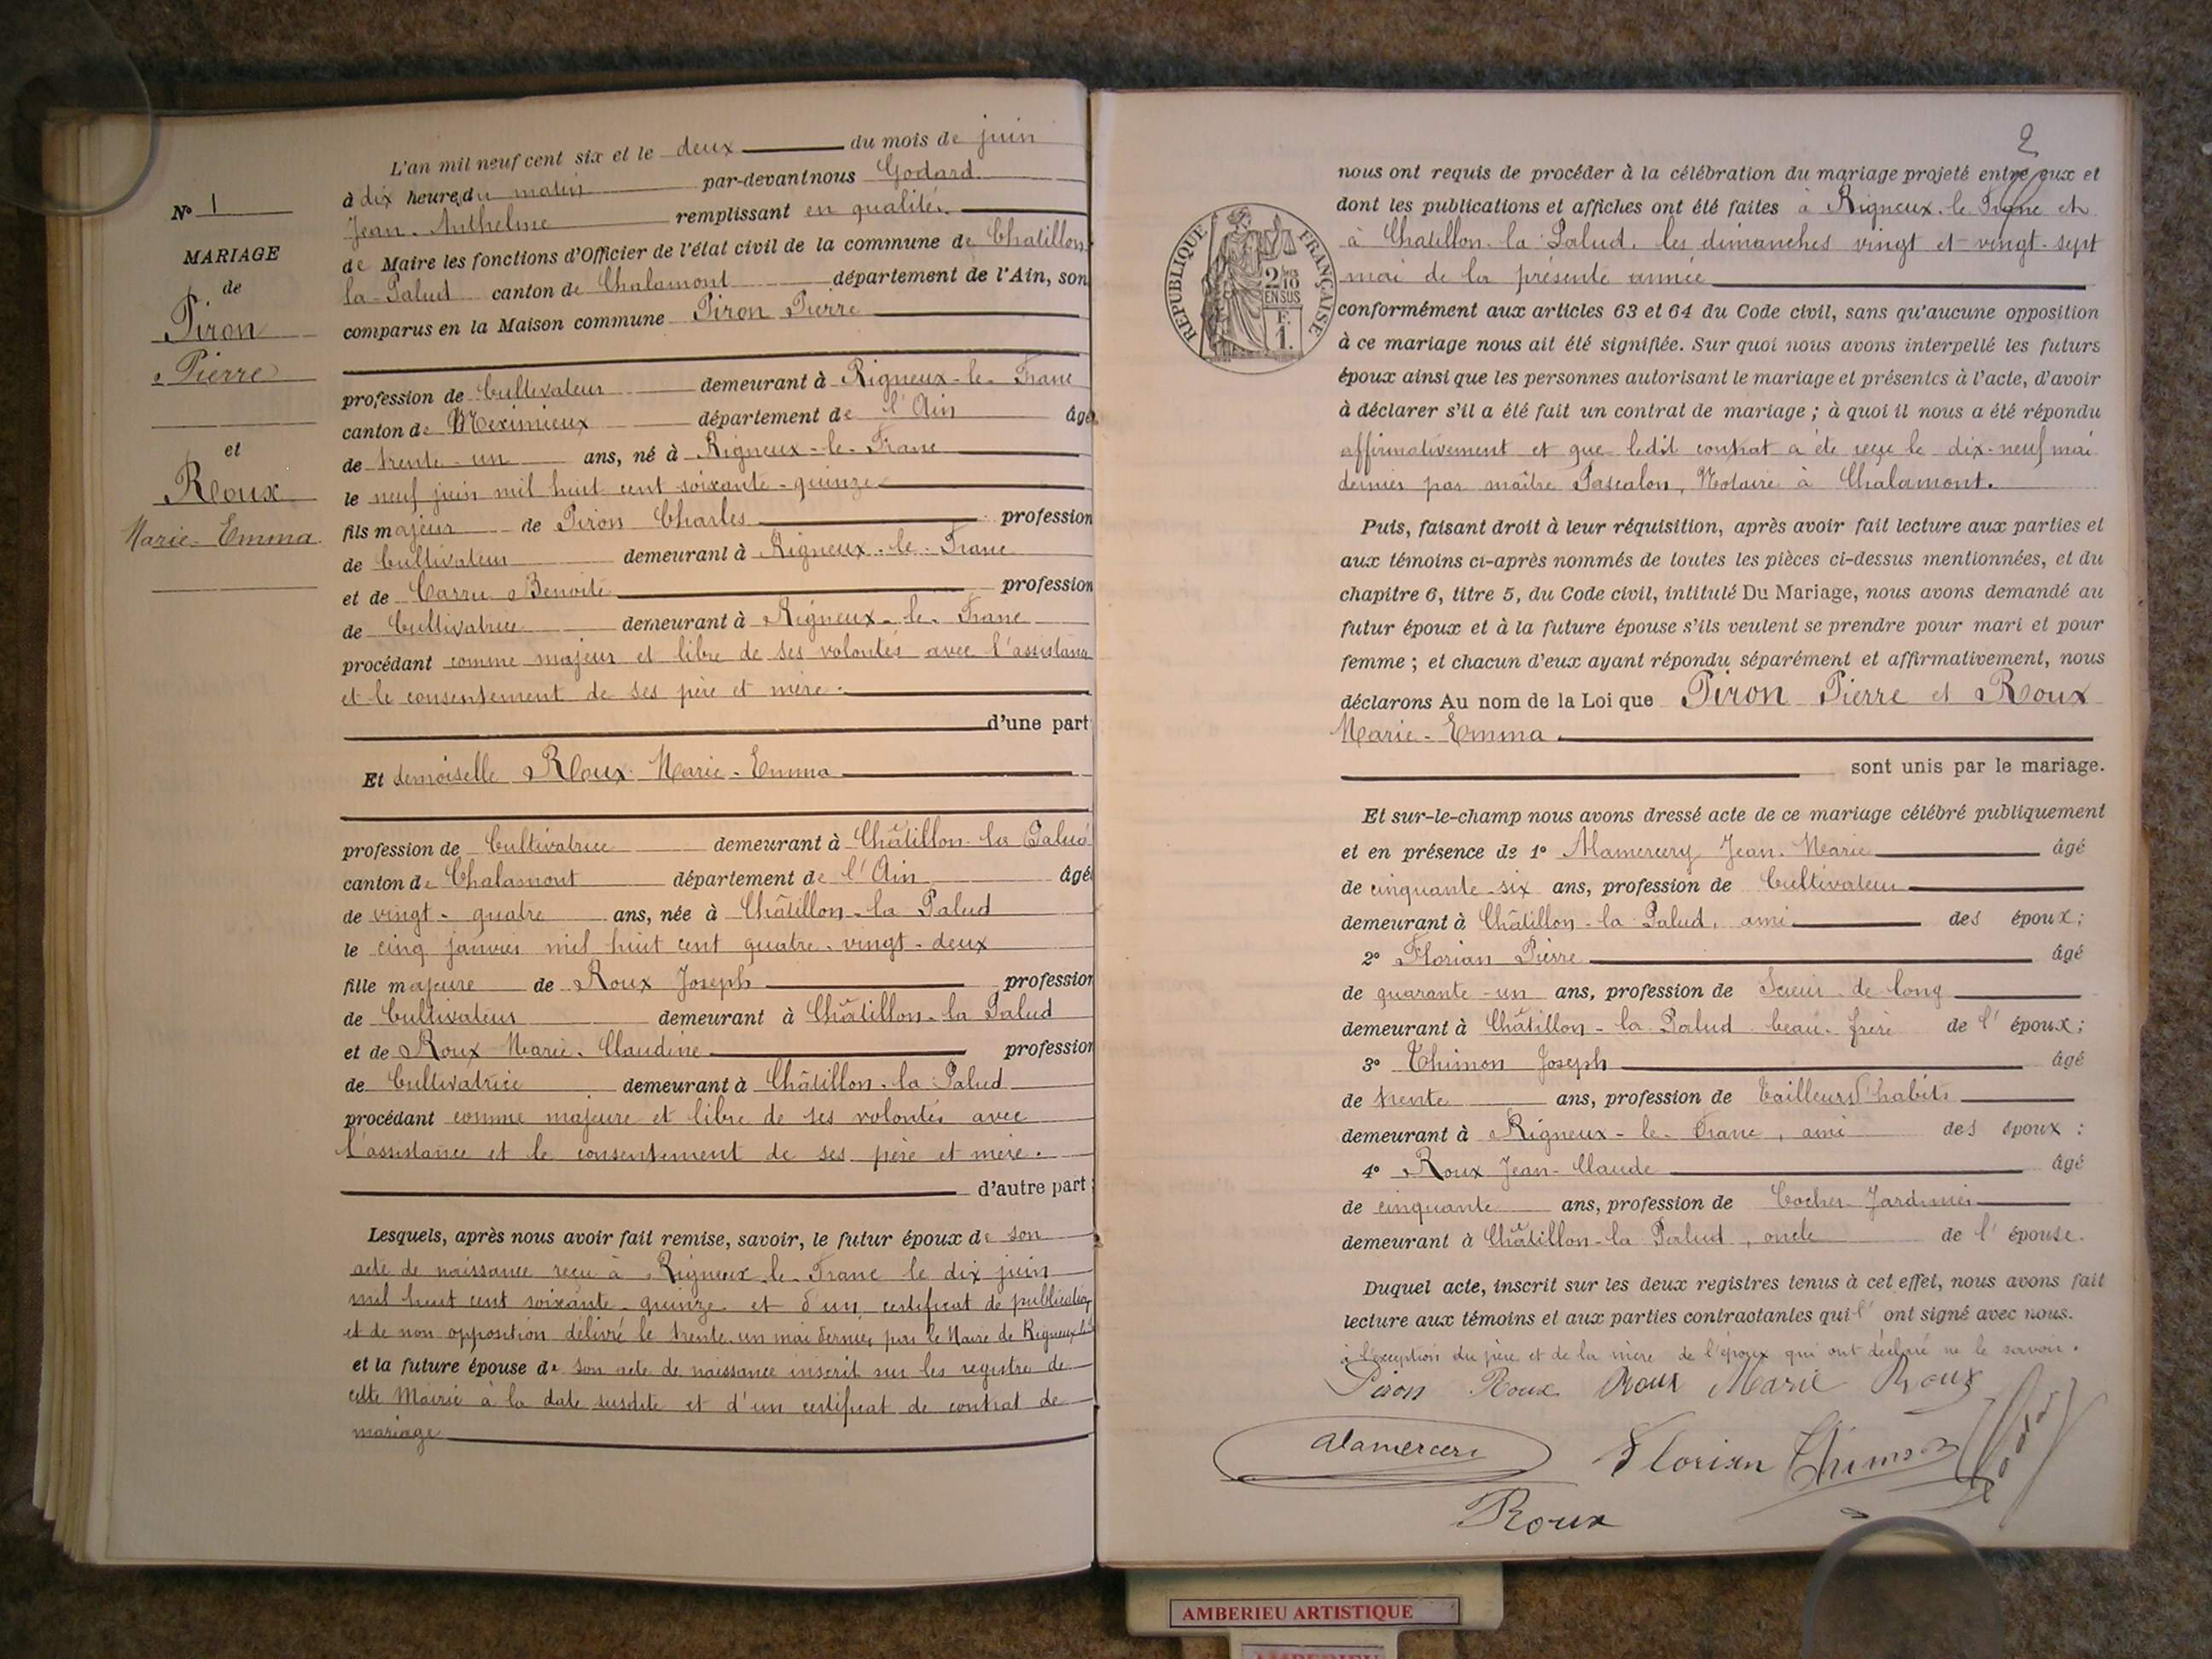 N° 1
MARIAGE
de
Piron
Pierre
et
Roux
Marie-Emma
L'an mil neuf cent six et le deux du mois de juin
à dix heures du matin par-devant nous Godard
Jean-Anthelme remplissant en qualité
de Maire les fonctions d'Officier de l'état civil de la commune de Chatillon
la-Palud canton de Chalamont département de l'Ain, son
comparus en la Maison commune Piron Pierre
profession de Cultivateur demeurant à Rigneux-le-Franc
canton de Meximieux département de l'Ain âgé
de trente-un ans, né à Rigneux-le-Franc
le neuf juin mil huit cent soixante-quinze
fils majeur de Piron Charles profession
de Cultivateur demeurant à Rigneux-le-Franc
et de Carru Benoite profession
de Cultivatrice demeurant à Rigneux-le-Franc
procédant comme majeur et libre de ses volontés avec l'assistance
et le consentement de ses père et mère.
d'une part
Et demoiselle Roux Marie-Emma
profession de Cultivatrice demeurant à Châtillon-la Palud
canton de Chalamont département de l'Ain âgé
de vingt-quatre ans, née à Châtillon-la Palud
le cinq janvier mil huit cent quatre-vingt-deux
fille majeure de Roux Joseph profession
de Cultivateur demeurant à Châtillon-la Palud
et de Roux Marie-Claudine profession
de Cultivatrice demeurant à Châtillon-la Palud
procédant comme majeure et libre de ses volontés avec
l'assistance et le consentement de ses père et mère.
d'autre part;
Lesquels, après nous avoir fait remise, savoir, le futur époux de son
acte de naissance reçu à Rigneux-le-Franc le dix juin
mil huit cent soixante-quinze et d'un certificat de publication
et de non opposition délivré le trente-un mai dernier par le Maire de Rigneux
et la future épouse de son acte de naissance inscrit sur les registre de
cette Mairie à la date susdite et d'un certificat de contrat de
mariage
2
RÉPUBLIQUE FRANÇAISE
2/10
EN SUS
F.
1.
nous ont requis de procéder à la célébration du mariage projeté entre eux et
dont les publications et affiches ont été faites à Rigneux-le-Franc et
à Chatillon-la-Palud, les dimanches vingt et vingt-sept
mai de la présente année
conformément aux articles 63 et 64 du Code civil, sans qu'aucune opposition
à ce mariage nous ait été signifiée. Sur quoi nous avons interpellé les futurs
époux ainsi que les personnes autorisant le mariage et présentes à l'acte, d'avoir
à déclarer s'il a été fait un contrat de mariage ; à quoi il nous a été répondu
affirmativement et que ledit contrat a été reçu le dix-neuf mai
dernier par maître Pascalon, Notaire à Chalamont.
Puis, faisant droit à leur réquisition, après avoir fait lecture aux parties et
aux témoins ci-après nommés de toutes les pièces ci-dessus mentionnées, et du
chapitre 6, titre 5, du Code civil, intitulé Du Mariage, nous avons demandé au
futur époux et à la future épouse s'ils veulent se prendre pour mari et pour
femme ; et chacun d'eux ayant répondu séparément et affirmativement, nous
déclarons Au nom de la Loi que Piron Pierre et Roux
Marie-Emma
sont unis par le mariage.
Et sur-le-champ nous avons dressé acte de ce mariage célébré publiquement
et en présence de 1° Alamercery Jean-Marie âgé
de cinquante-six ans, profession de Cultivateur
demeurant à Châtillon-la Palud, ami des époux;
2° Florian Pierre âgé
de quarante-un ans, profession de Scieur de long
demeurant à Châtillon-la Palud beau-frère de l'époux;
3° Thimon Joseph âgé
de trente ans, profession de tailleur d'habits
demeurant à Rigneux-le-Franc, ami des époux :
4° Roux Jean-Claude âgé
de cinquante ans, profession de Cocher Jardinier
demeurant à Châtillon-la Palud, oncle de l'épouse.
Duquel acte, inscrit sur les deux registres tenus à cet effet, nous avons fait
lecture aux témoins et aux parties contractantes qui l'ont signé avec nous.
à l'exception du père et de la mère de l'époux qui ont déclaré ne le savoir.
Piron Roux Roux Marie Roux
Alamercery Florian Thimon Godard
Roux
AMBERIEU ARTISTIQUE
AMBERIEU